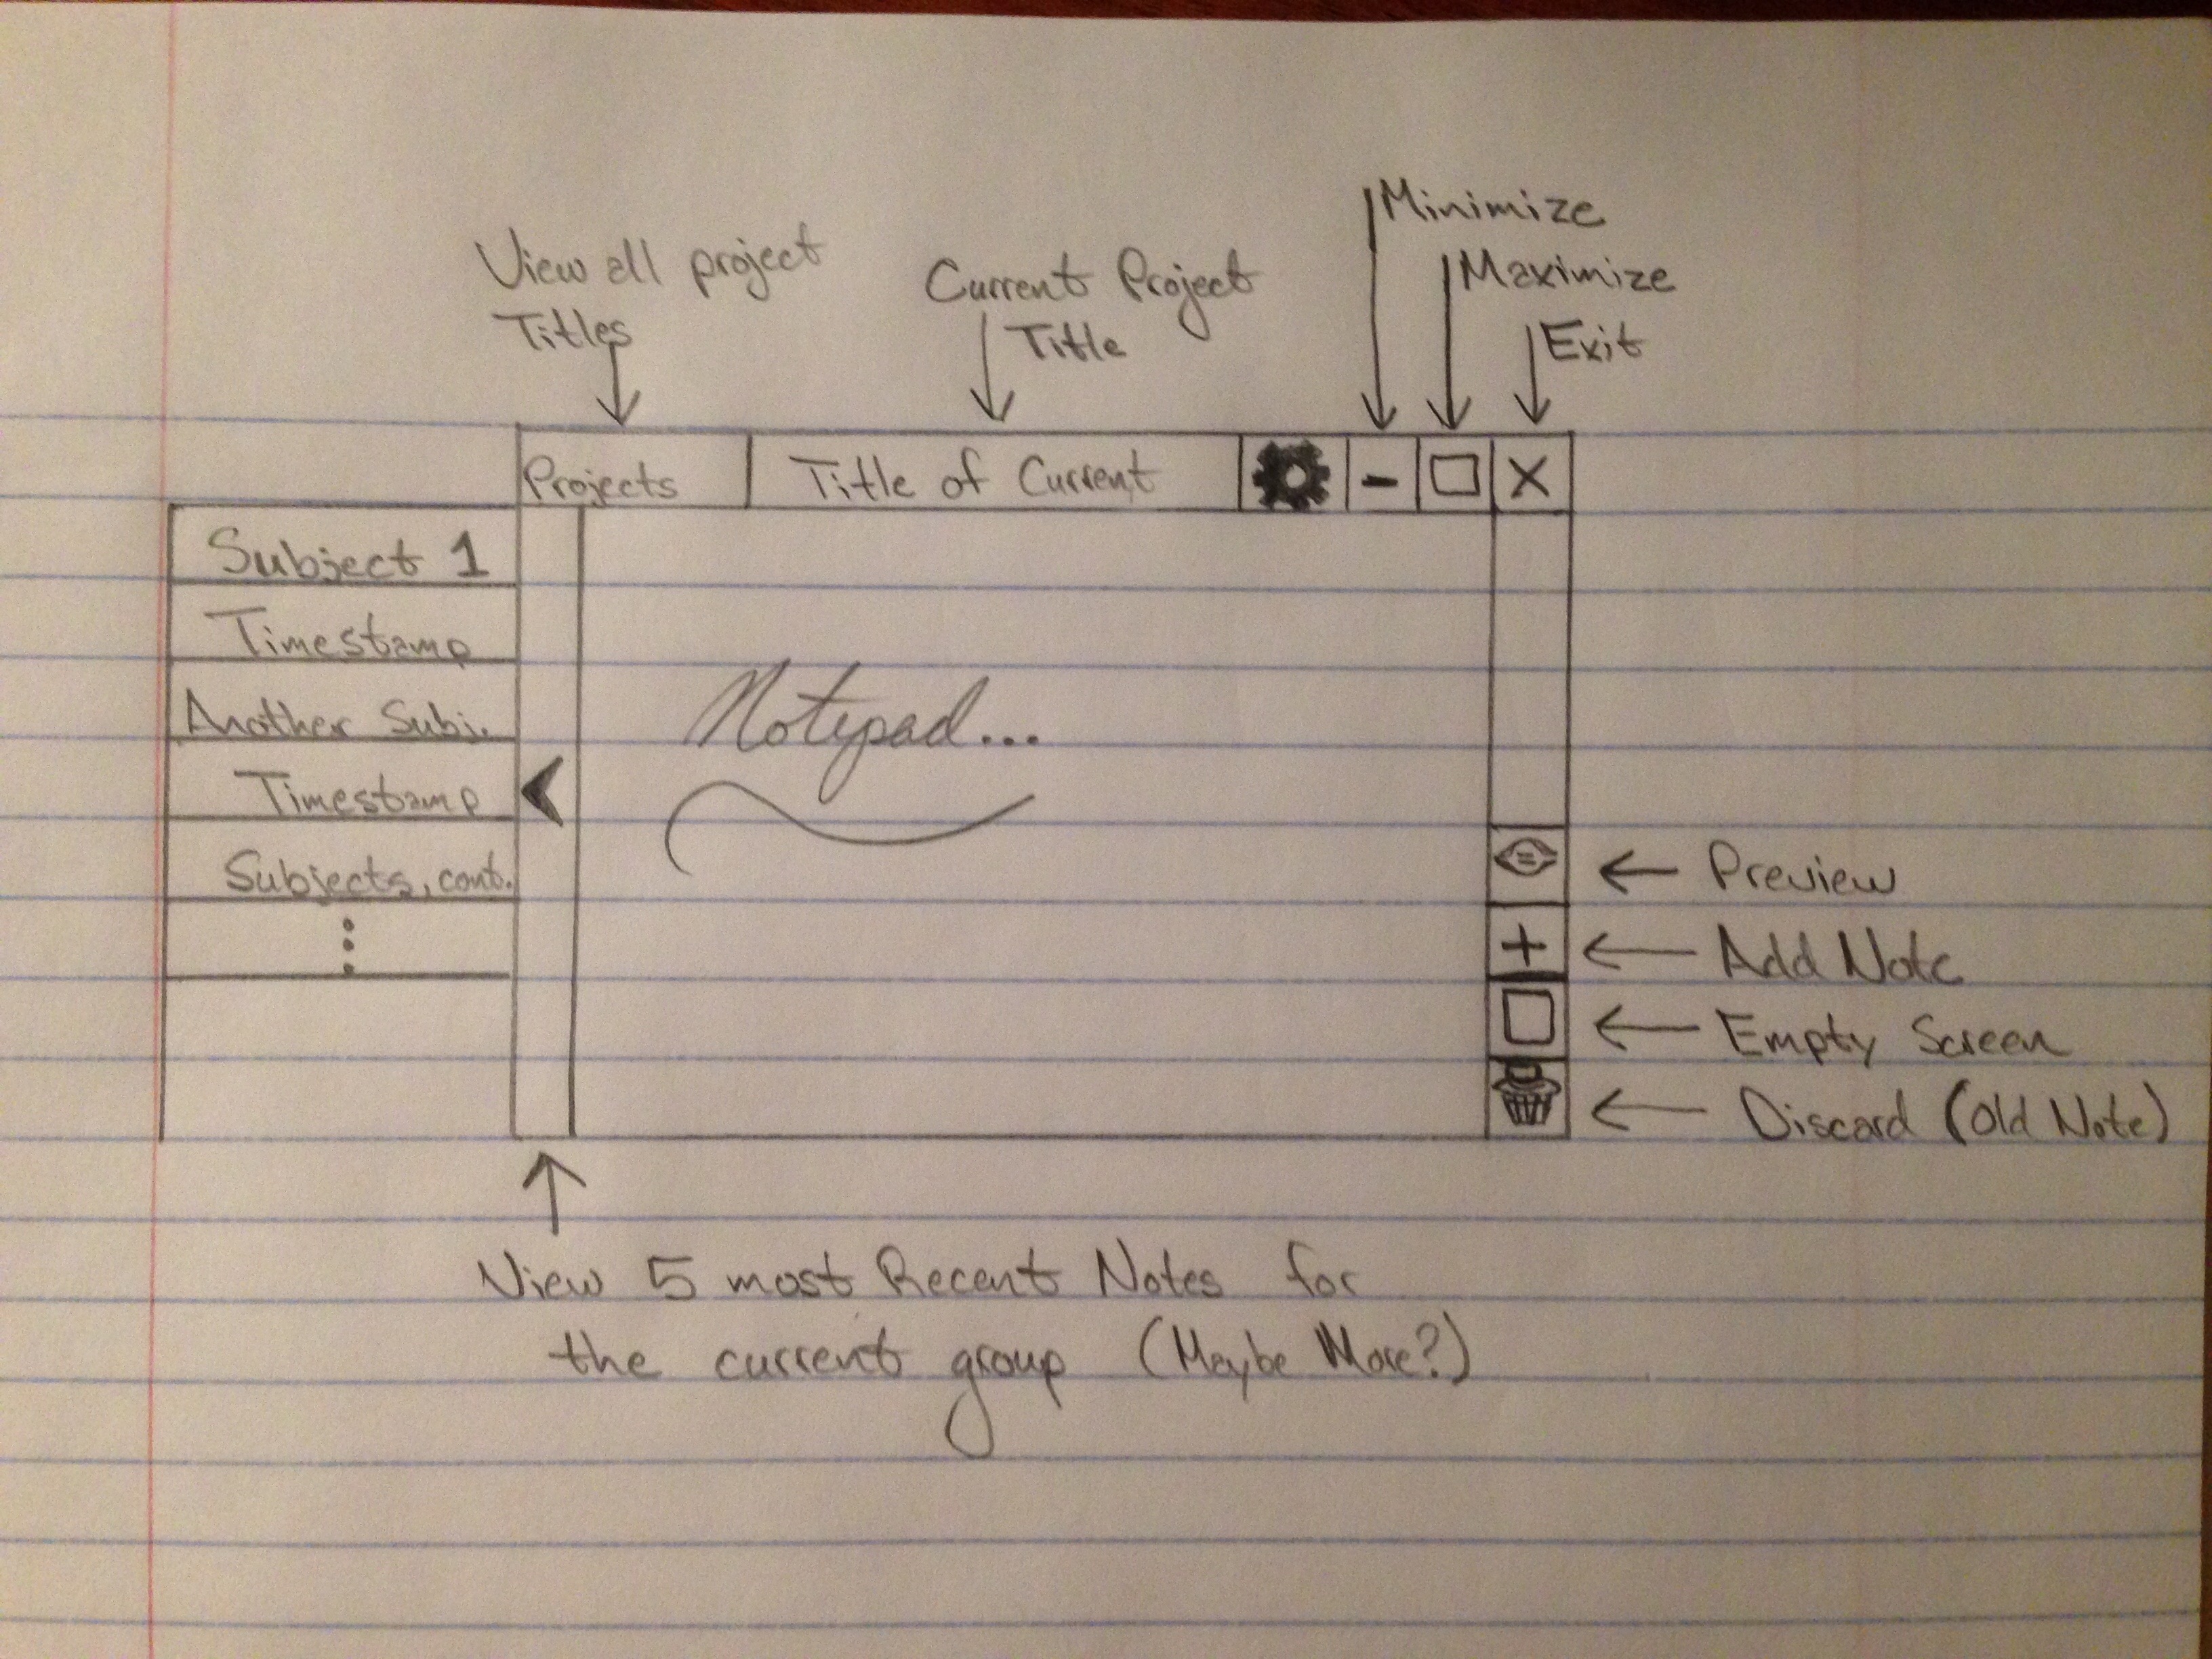 Minimize
Maximize
Exit
View all project
Titles
Current Project
Title
Projects
Title of Current
X
Subject 1
Timestamp
Another Subj.
Timestamp
Subjects, cont.
Notepad...
Preview
Add Note
Empty Screen
Discard (Old Note)
View 5 most Recent Notes for
the current group (Maybe More?)